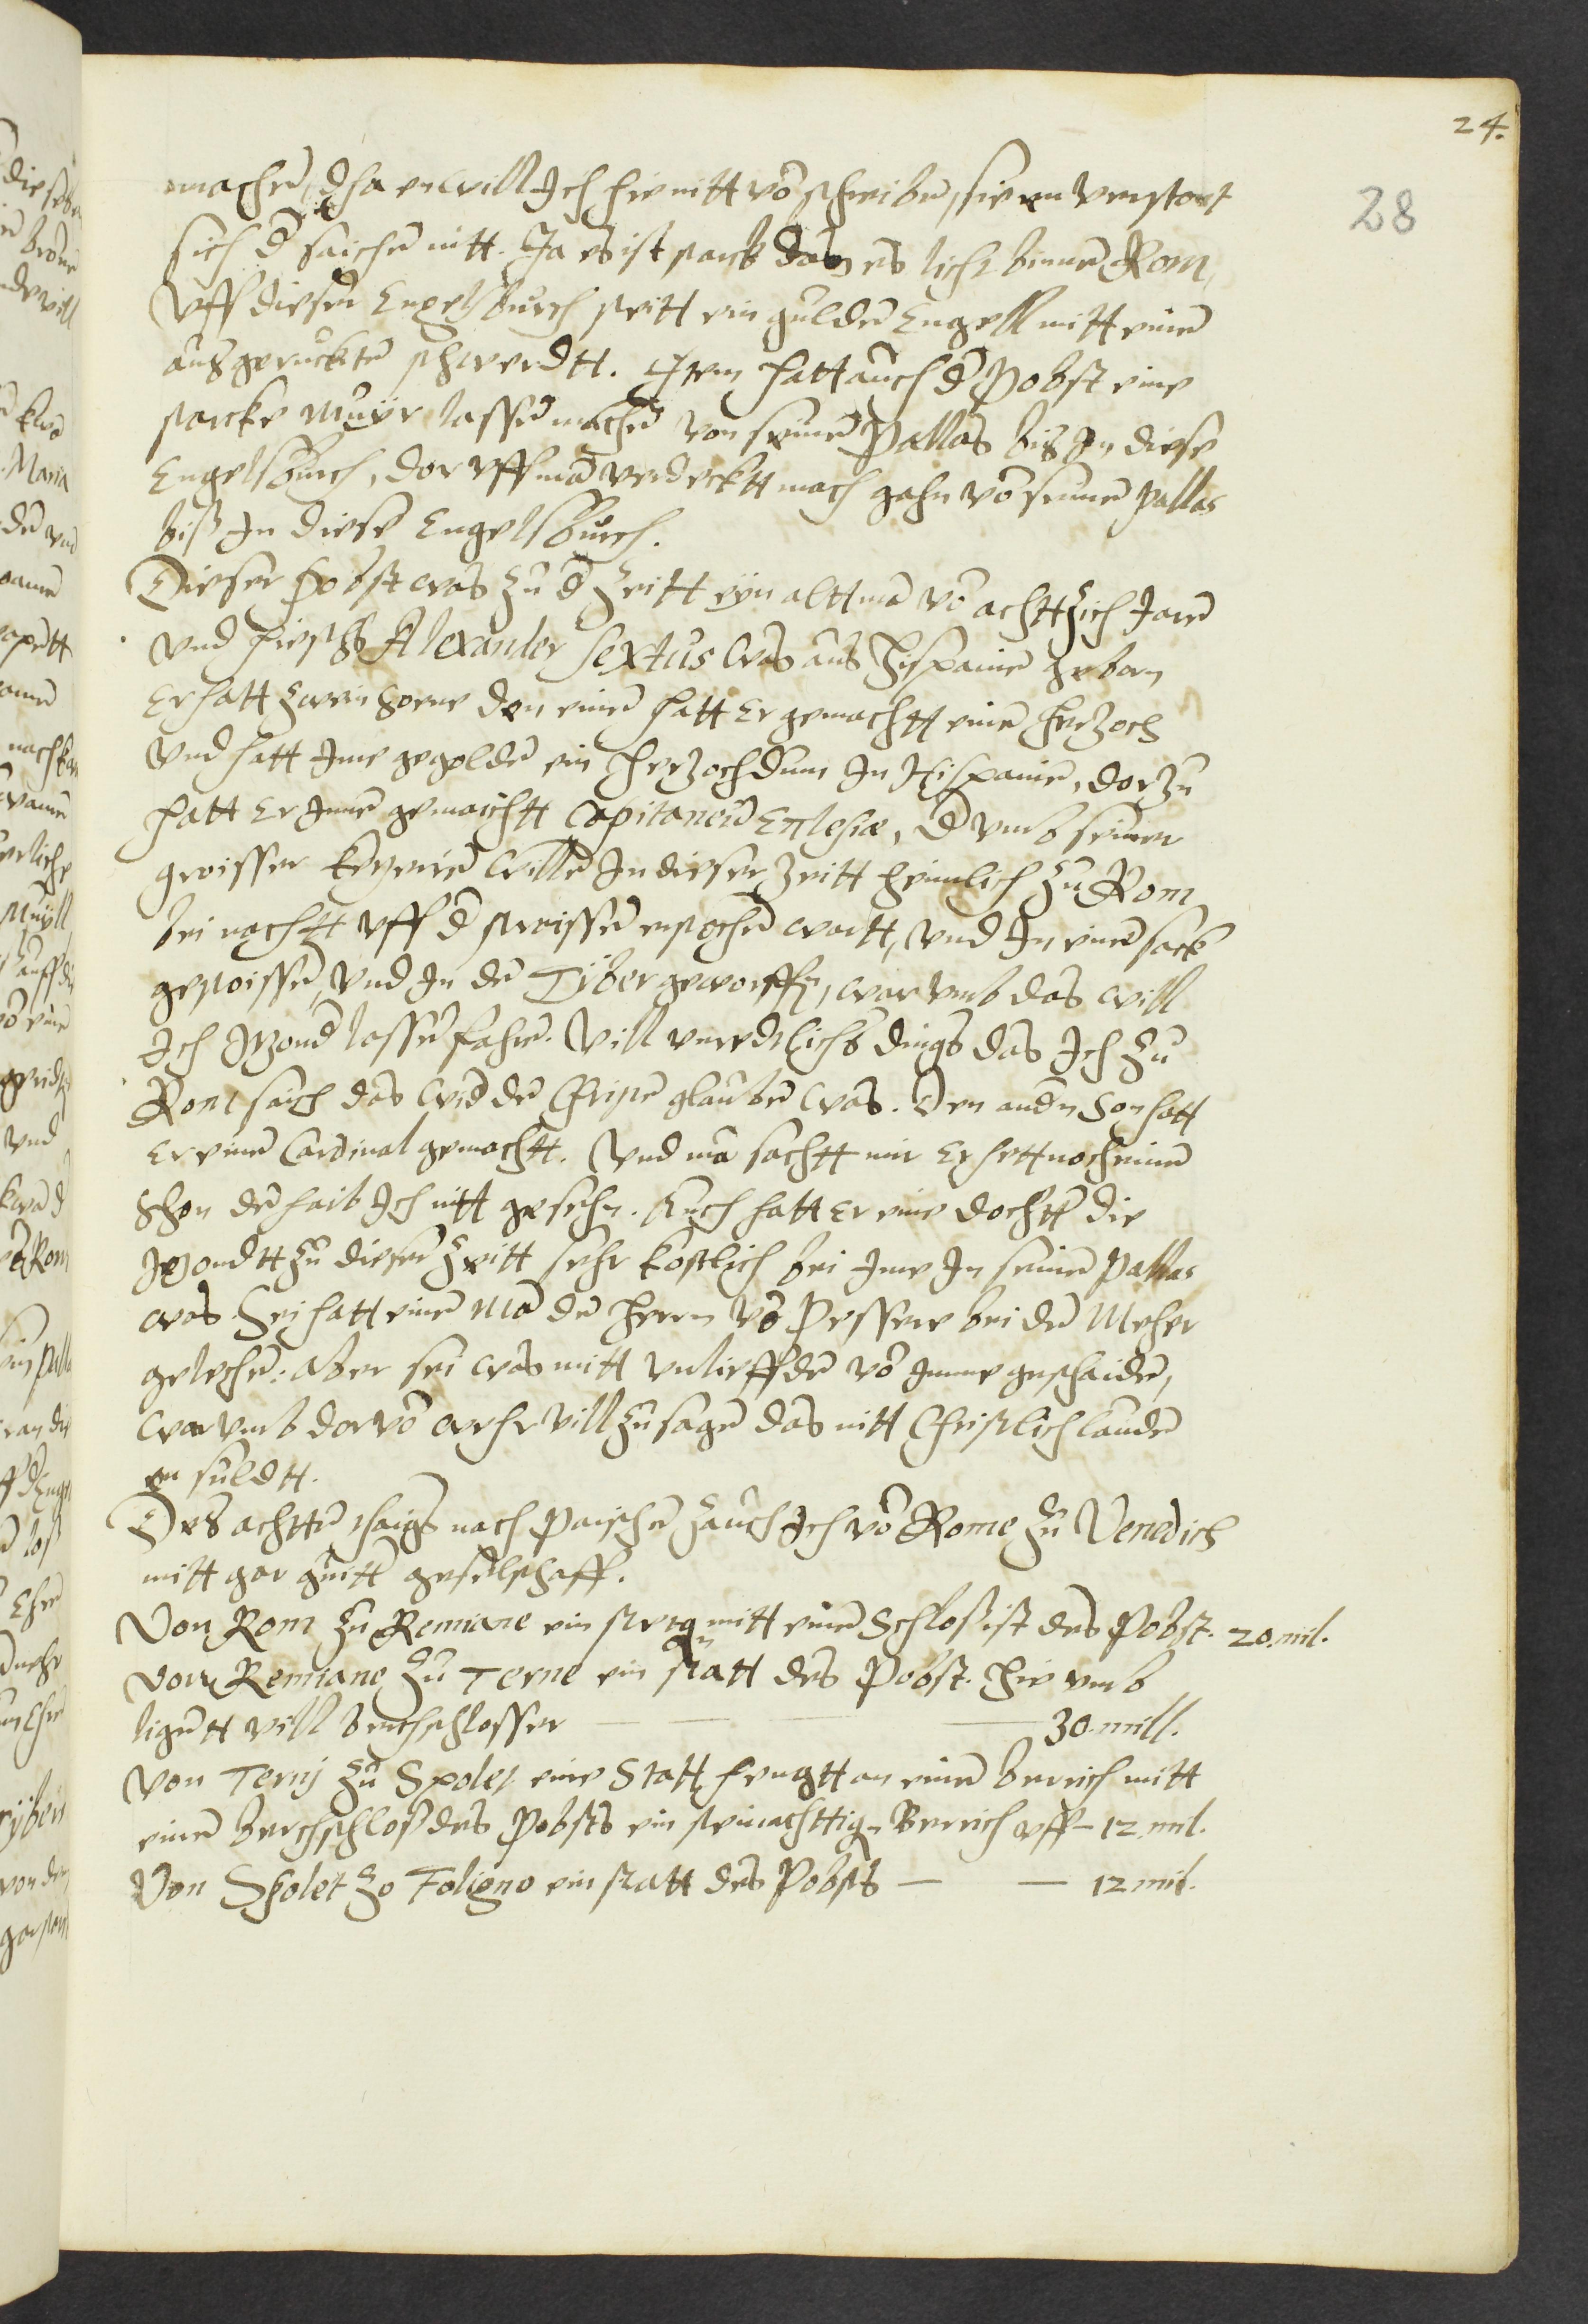 24.
28
machen, dha en will Ich hie nitt vō schreiben, sie en verstort
sich d̄ saichen nitt. Ja es ist starck dan es licht binnen Rom,
Uff dieser Engelsburch stett ein gulden Engell mitt einem
ausgeruckten schwerdtt. Item hatt auch d̄ Pobst eine
starcke muijr lassen machen von seinen Pallas bis In diese
Engelsburch, dar uff mā verdecktt mach gahn vō seinen pallas
biß In diese Engelsburch.
Dieser Pobst was zu d̄ Zeitt eijn altt mā vō achttzich Jaren
und hiesch Alexander Sextus was aus Hispanien geborn
Er hatt zwein Soene den einen hatt Er gemachtt einen Hertzoch
Und hatt Ime gegolden ein Hertzochdum In Hispanien, dar zu
hatt Er Imme gemaichtt Capitaneū Eclesiæ, d̄ umb seiner
groisser ketzerien willen In dieser Zeitt heimlich zu Rom
bei nachtt uff d̄ stroissen erstochen wartt, und In einen sack
gestoissen, und In den Tijber geworffn, war umb das will
Ich Itzond lassen fahren. Vill unredtlichs dings das Ich zu
Rom saich das widden Christen glauben was. Den andn Son hatt
Er einen Cardinal gemachtt. Und mā sachtt mir Er hett noch einen
Shon den haib Ich nitt gesehn. Auch hatt Er eine dochtter die
Itzondtt zu dieser Zeitt sehr kostlich bei Ime In seinen Pallas
was. Sei hatt einen Mā den Herrn vō Pessere bei den Meher
gelechen: Aber sei was mitt unlieffden vō Imme geschaiden,
warumb dar vō wehr vill zu sagen das nitt Christlich lauden
en suldtt.
Des achtten thaigs nach Paischen zauch Ich vō Rome zu Venedich
mitt gar guitt geselschaff.
Von Rom zu Remiane ein stetgn mitt einen Schloß ist des Pobst. 20. mil.
Von Remiane zu Terne ein statt des Pobst. Hie umb
ligentt vill berchschlosser — — — — 30. mill.
Von Ternij zu Spolet eine Statt hengtt an einen berrich mitt
einen berchschloß des Pobsts ein steinachttign Berrich uff - 12. mil.
Von Spolet zo Foligno ein statt des Pobsts — — 12 mil.